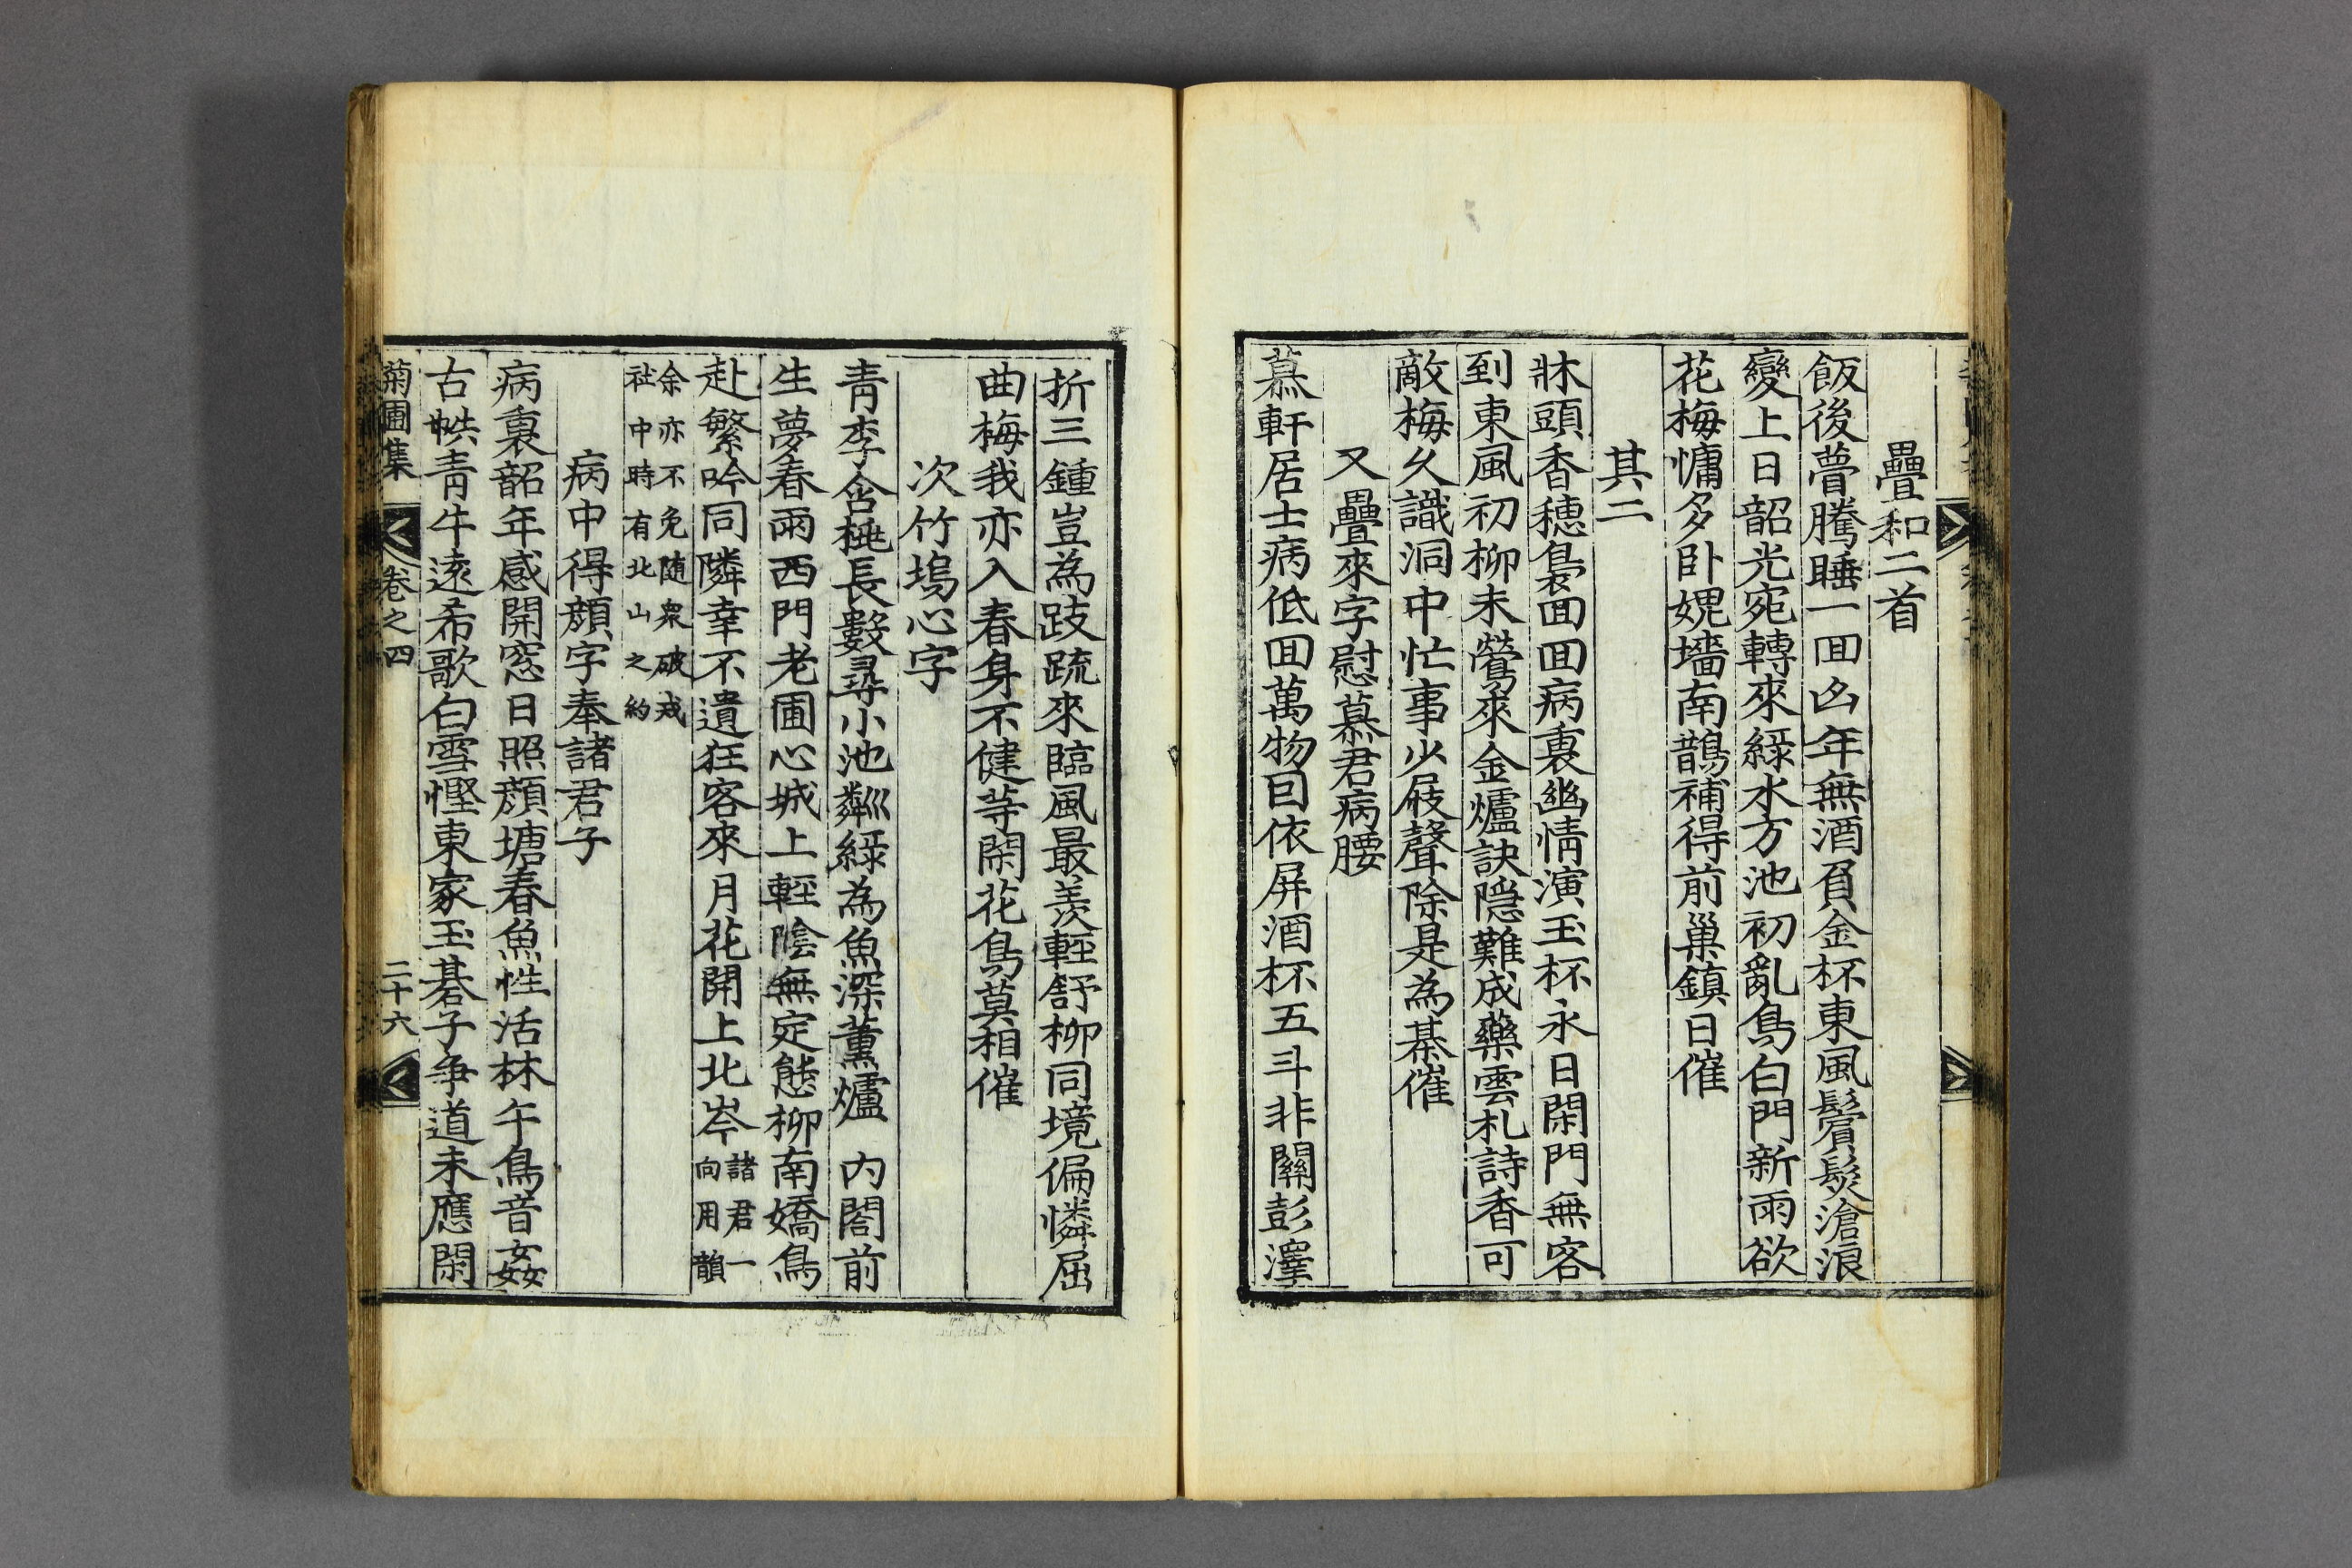 疊和二首
飯後瞢騰睡一回凶年無酒負金杯東風鬢髮滄浪
變上日韶光宛轉來綠水方池初亂鳥白門新雨欲
花梅慵多卧媲墻南鵲補得前巢鎮日催
其二
牀頭香穗裊回回病裏幽情演玉杯永日閑門無客
到東風初柳未鶯來金爐訣隱難成藥雲札詩香可
敵梅久識洞中忙事少屐聲除是為棊催
又疊來字慰慕君病腰
慕軒居士病低回萬物曰依屏酒杯五斗非關彭澤
折三鍾豈為跂䟽來臨風最羨輕舒柳同境偏憐屈
曲梅我亦入春身不健等閑花鳥莫相催
次竹塢心字
青李含桃長數尋小池粼綠為魚深薰爐 內閤前
生夢春雨西門老圃心城上輕陰無定態柳南嬌鳥
赴繁吟同隣幸不遺狂客來月花開上北岑諸君一
向用韻
余亦不免随衆破戒
社中時有北山之約
病中得顏字奉諸君子
病裏韶年感開窓日照顏塘春魚性活林午鳥音姦
古帙青牛遠希歌白雪慳東家玉碁子爭道未應閑
菊圃集 卷之四 二十六